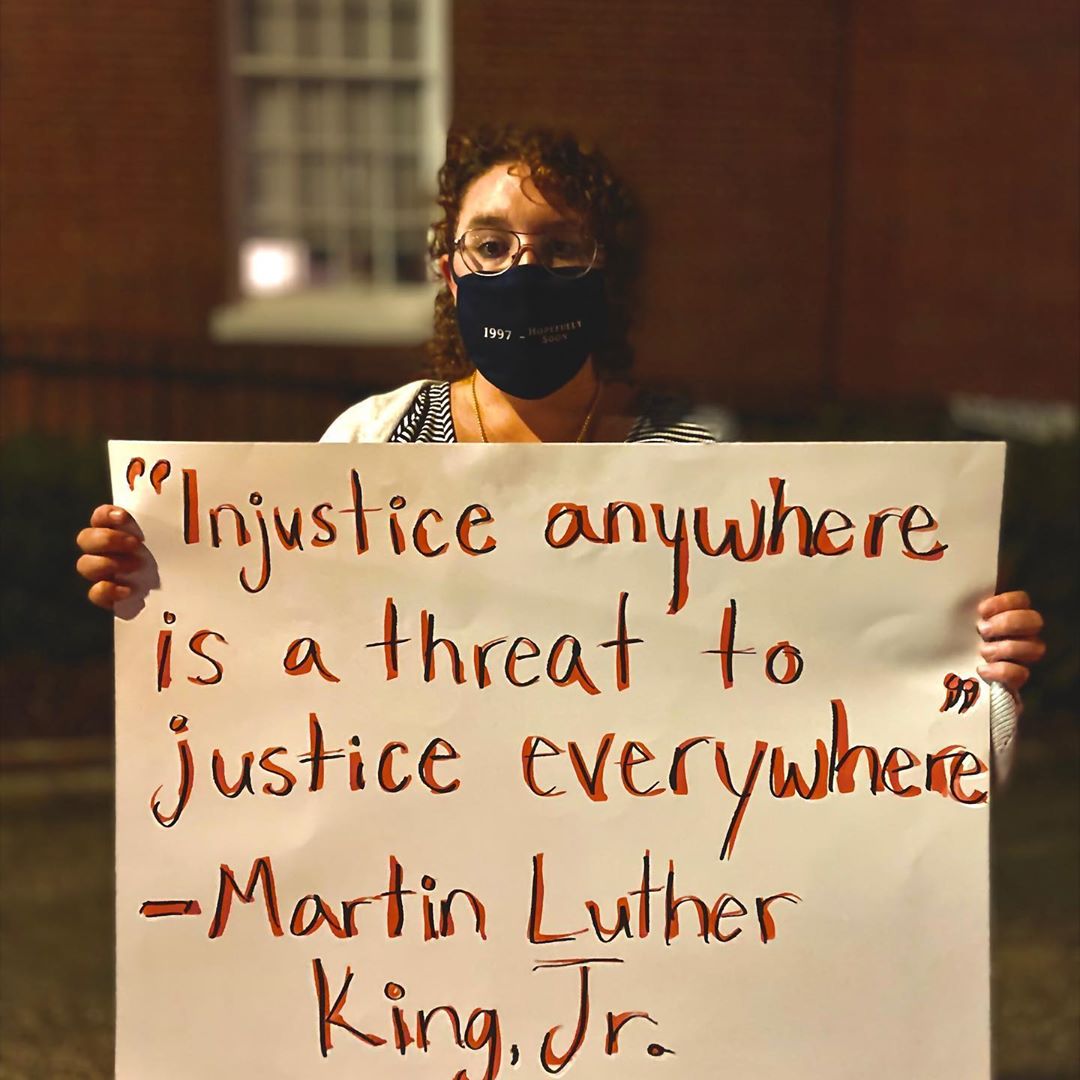 1997 - HOPEFULLY
SOON
"Injustice anywhere
is a threat to
justice everywhere"
-Martin Luther
King, Jr.